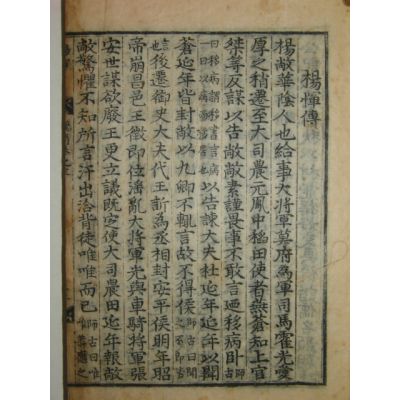 楊惲傳
楊敞華陰人也給事大將軍莫府爲軍司馬霍光愛
厚之稍遷至大司農元鳳中稻田使者燕蒼知上官
桀等反謀以告敞敞素謹畏事不敢言廼移病臥師古
曰移病謂移書言病一曰以病而移居以告諫大夫杜延年延年以聞
蒼延年皆封敞以九卿不輒言故不得侯師古曰聞之不即
後遷御史大夫代王訢爲丞相封安平侯明年昭
帝崩昌邑王徵即位淫亂大將軍光與車騎將軍張
安世謀欲廢王更立議既定使大司農田延年報敞
敞驚懼不知所言汗出洽背徒唯唯而已師古曰唯唯恭應之